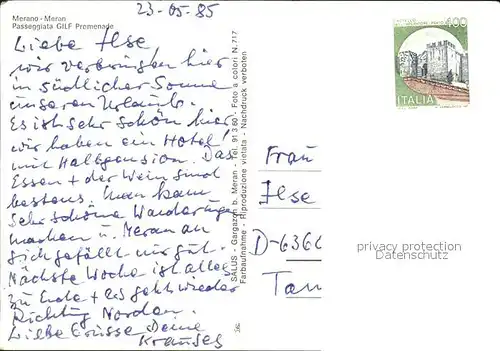 23-05-85
Merano - Meran
Passeggiata GILF Promenade
Liebe Ilse
wir verbringen hier
in südlicher Sonne
unseren Urlaub.
Es ist sehr schön hier,
wir haben ein Hotel
mit Halbpension. Das
Essen + der Wein sind
bestens. Man kann
sehr schöne Wanderungen
machen u. Meran an
sich gefällt mir gut.
Nächste Woche ist alles
zu Ende + es geht wieder
Richtung Norden.
Liebe Grüsse Deine
SALUS - Gargazon b. Meran - Tel. 91360 - Foto a colori N. 717
Farbaufnahme - Riproduzione vietata - Nachdruck verboten
36
400
ITALIA
Frau
Ilse
D-636
Tan
privacy protection
Datenschutz